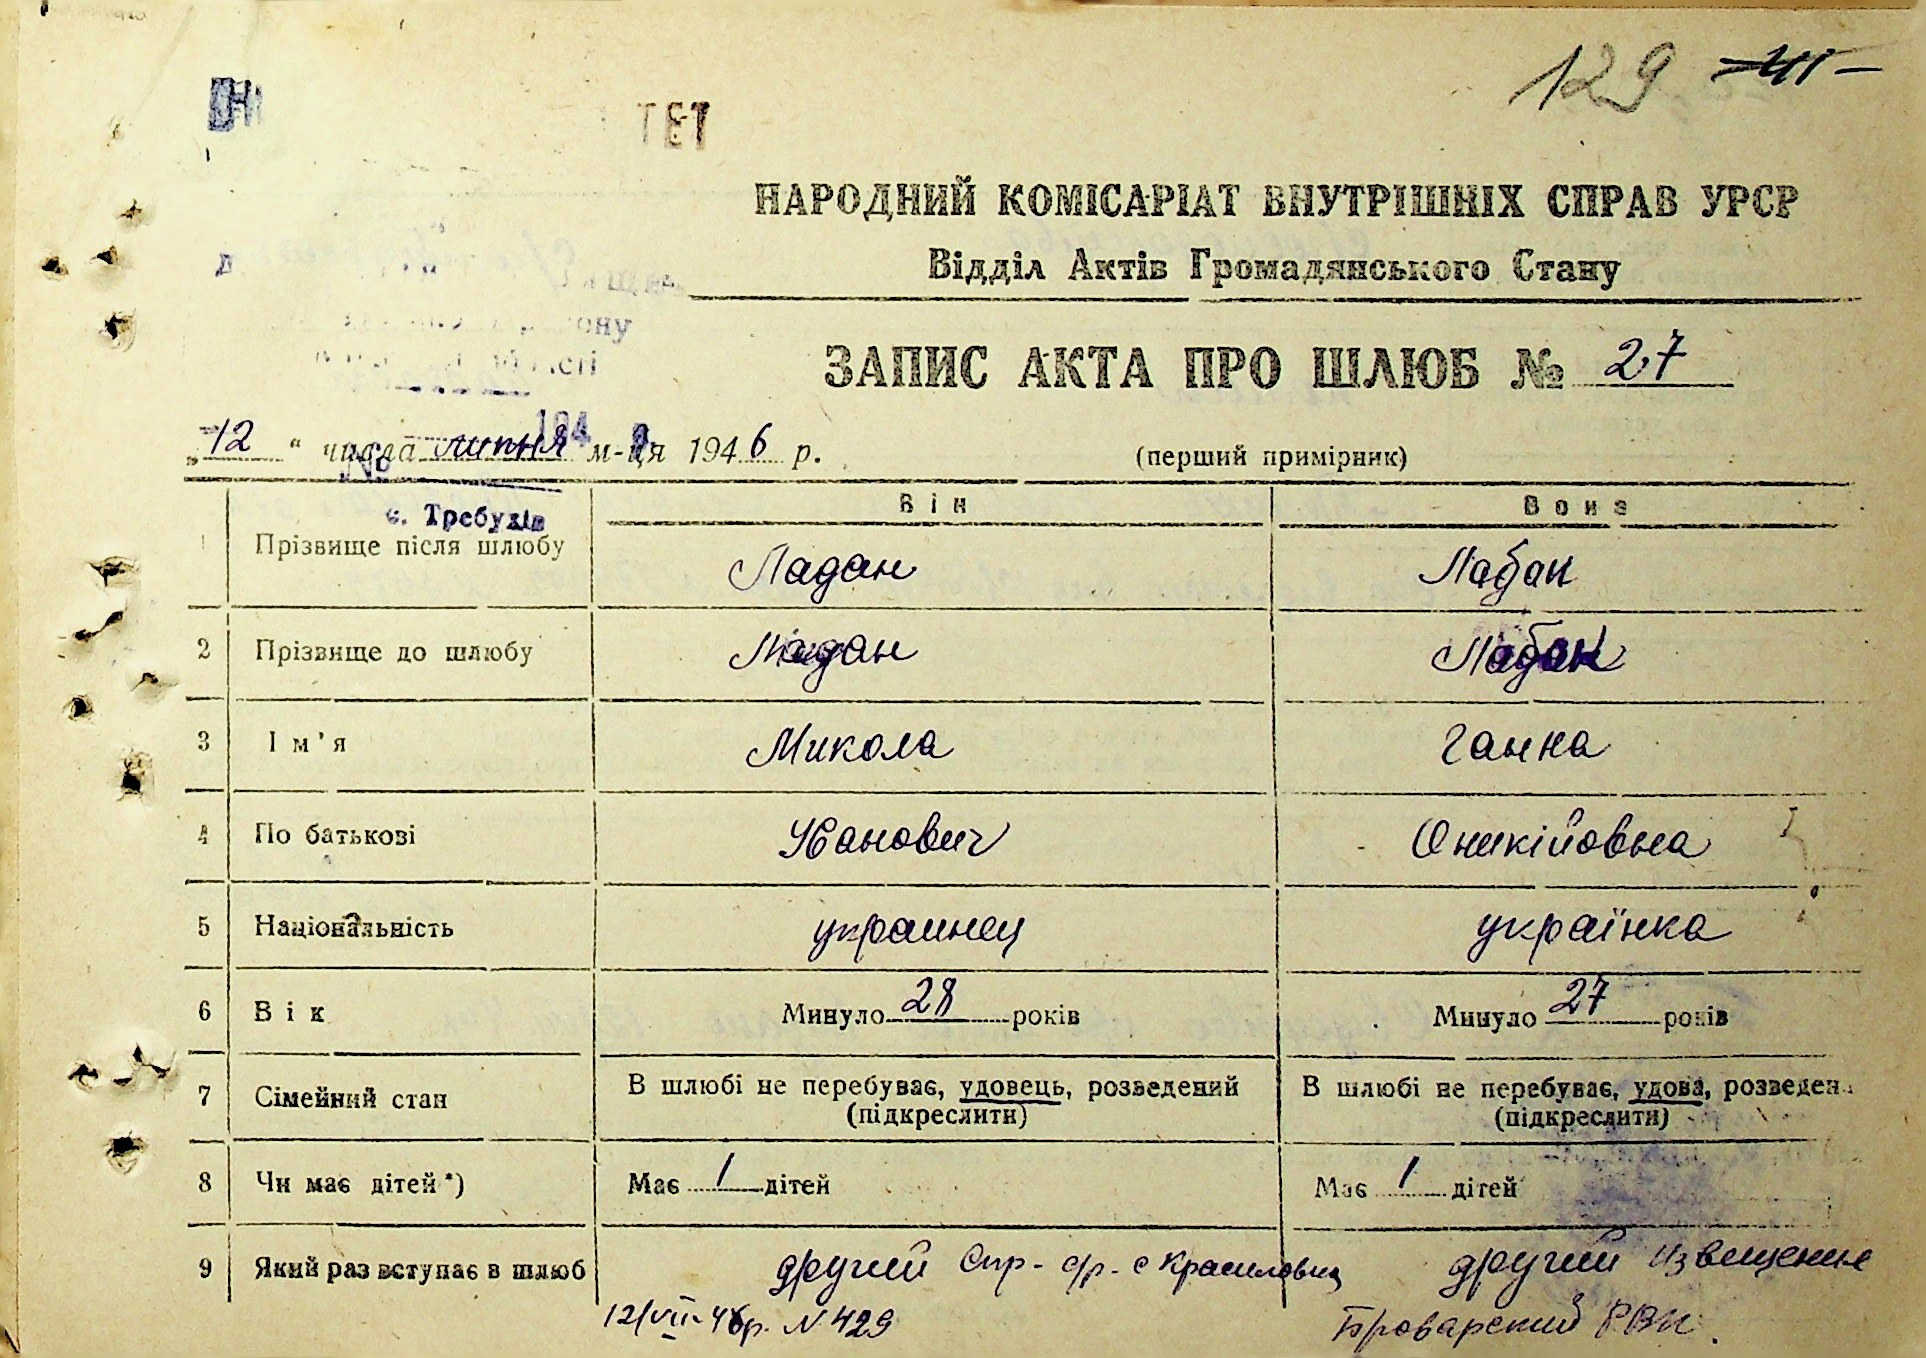 129
ТЕТ
НАРОДНИЙ КОМІСАРІАТ ВНУТРІШНІХ СПРАВ УРСР
Відділ Актів Громадянського Стану
ону
ості
ЗАПИС АКТА ПРО ШЛЮБ № 27
194
„12“ числа липня м-ця 1946 р. (перший примірник)
№
с. Требухів
Він Вона
1 Прізвище після шлюбу Ладан Лабан
2 Прізвище до шлюбу Ладан Лабан
3 Ім'я Микола Ганна
4 По батькові Иванович Оникійовна
5 Національність украинец українка
6 Вік Минуло 28 років Минуло 27 років
7 Сімейний стан В шлюбі не перебуває, удовець, розведений (підкреслити) В шлюбі не перебуває, удова, розведен (підкреслити)
8 Чи має дітей*) Має 1 дітей Має 1 дітей
9 Який раз вступає в шлюб другий Спр- с/р- с Красиловка другий извещение
12/VII-46р. N 429 Броварский РВК.